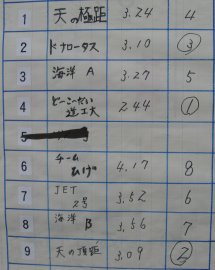 1 天の極距 3.24 4
2 ドナロータス 3.10 ③
3 海洋 A 3.27 5
4 どーこーだい 造工大 2.44 ①
5
6 チーム あげ 4.17 8
7 JET 2号 3.52 6
8 海洋 B 3.56 7
9 天の頂距 3.09 ②